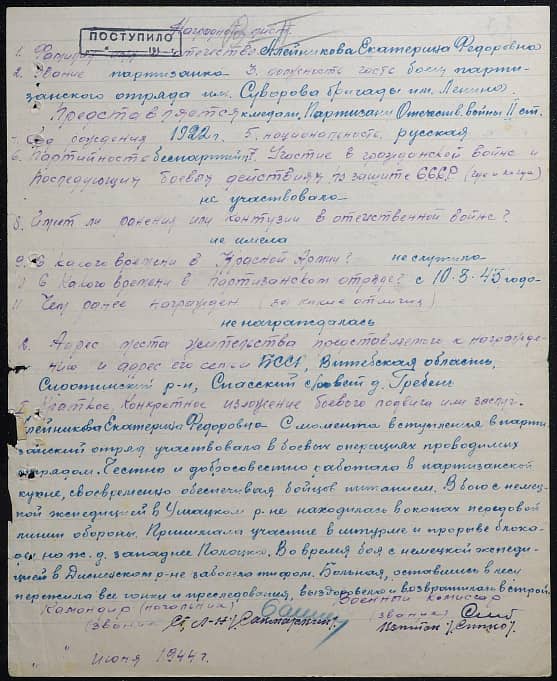 Наградной лист
ПОСТУПИЛО
1. Фамилия имя отчество Алейникова Екатерина Федоровна
2. Звание партизанка 3. должность часть боец парти-
занского отряда им. Суворова бригады им. Ленина.
Представляется к медали, Партизан Отечеств. войны II ст.
4. Год рождения 1922 г. 5. национальность русская
6. партийность беспартийн. 7. Участие в гражданской войне и
последующих боевых действиях по защите СССР (где и когда)
не участвовала
8. Имеет ли ранения или контузии в отечественной войне?
не имела
9. С какого времени в Красной Армии? не служила
10 С какого времени в партизанском отряде? с 10.3.43 года
11 Чем ранее награжден (за какие отличия)
не награждалась
12. Адрес места жительства представляемого к награжде-
нию и адрес его семьи БССР, Витебская область,
р-н, Спасский с/совет д. Гребени
I. Краткое, конкретное изложение боевого подвига или заслуг.
Алейникова Екатерина Федоровна С момента вступления в парти-
занский отряд участвовала в боевых операциях проводимых
отрядом. Честно и добросовестно работала в партизанской
кухне, своевременно обеспечивая бойцов питанием. В бою с немец-
кой экспедицией в Ушацком р-не находилась в окопах передовой
линии обороны. Принимала участие в штурме и прорыве блока-
ды на ж.д. западнее Полоцка. Во время боя с немецкой экспеди-
цией в Дисненском р-не заболела тифом. Больная, оставшись в лесу
перенесла все гонки и преследования, выздоровела и возвратилась в строй.
Командир (начальник) Военный комиссар
(звание) Ст. Л-Н / (звание)
Капитан /
" " июня 1944 г.